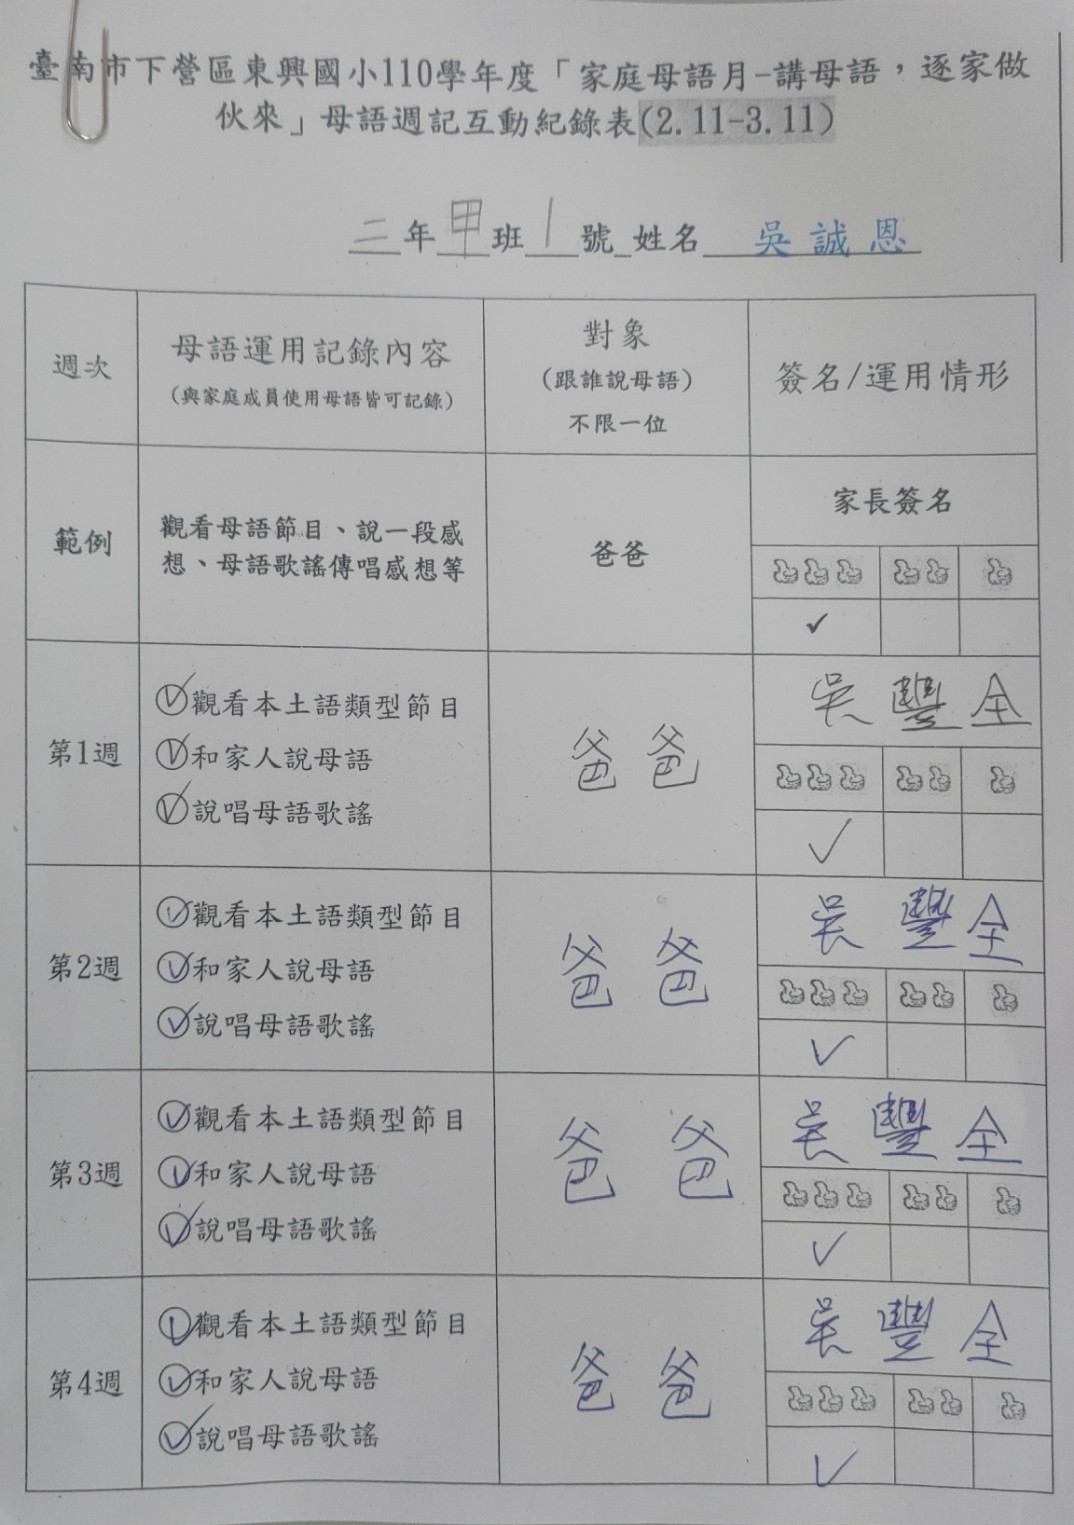 臺南市下營區東興國小110學年度「家庭母語月-講母語,逐家做
伙來」母語週記互動紀錄表(2.11-3.11)
三年甲班1號 姓名 吳誠恩
週次
母語運用記錄內容
(與家庭成員使用母語皆可記錄)
對象
(跟誰說母語)
不限一位
簽名/運用情形
範例
觀看母語節目、說一段感
想、母語歌謠傳唱感想等
爸爸
家長簽名
✓
第1週
✓觀看本土語類型節目
✓和家人說母語
✓說唱母語歌謠
爸爸
吳豐全
✓
第2週
✓觀看本土語類型節目
✓和家人說母語
✓說唱母語歌謠
爸爸
吳豐全
✓
第3週
✓觀看本土語類型節目
✓和家人說母語
✓說唱母語歌謠
爸爸
吳豐全
✓
第4週
✓觀看本土語類型節目
✓和家人說母語
✓說唱母語歌謠
爸爸
吳豐全
✓